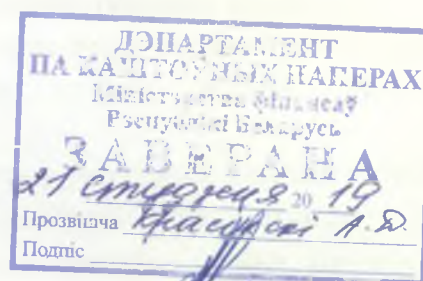 ДЭПАРТАМЕНТ
ПА КАШТОЎНЫХ ПАПЕРАХ
Міністэрства фінансаў
Рэспублікі Беларусь
ЗАВЕРАНА
21 студзеня 20 19
Прозвішча А.Д.
Подпіс